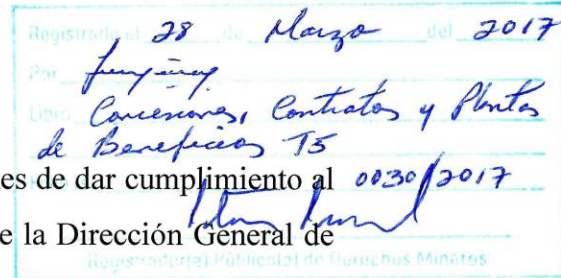 Registrado el 28 de Marzo del 2017
Por
Libro Concesiones, Contratos y Plantas
de Beneficios T5
es de dar cumplimiento al 0030/2017
e la Dirección General de
Registrador(a) Público(a) de Derechos Mineros